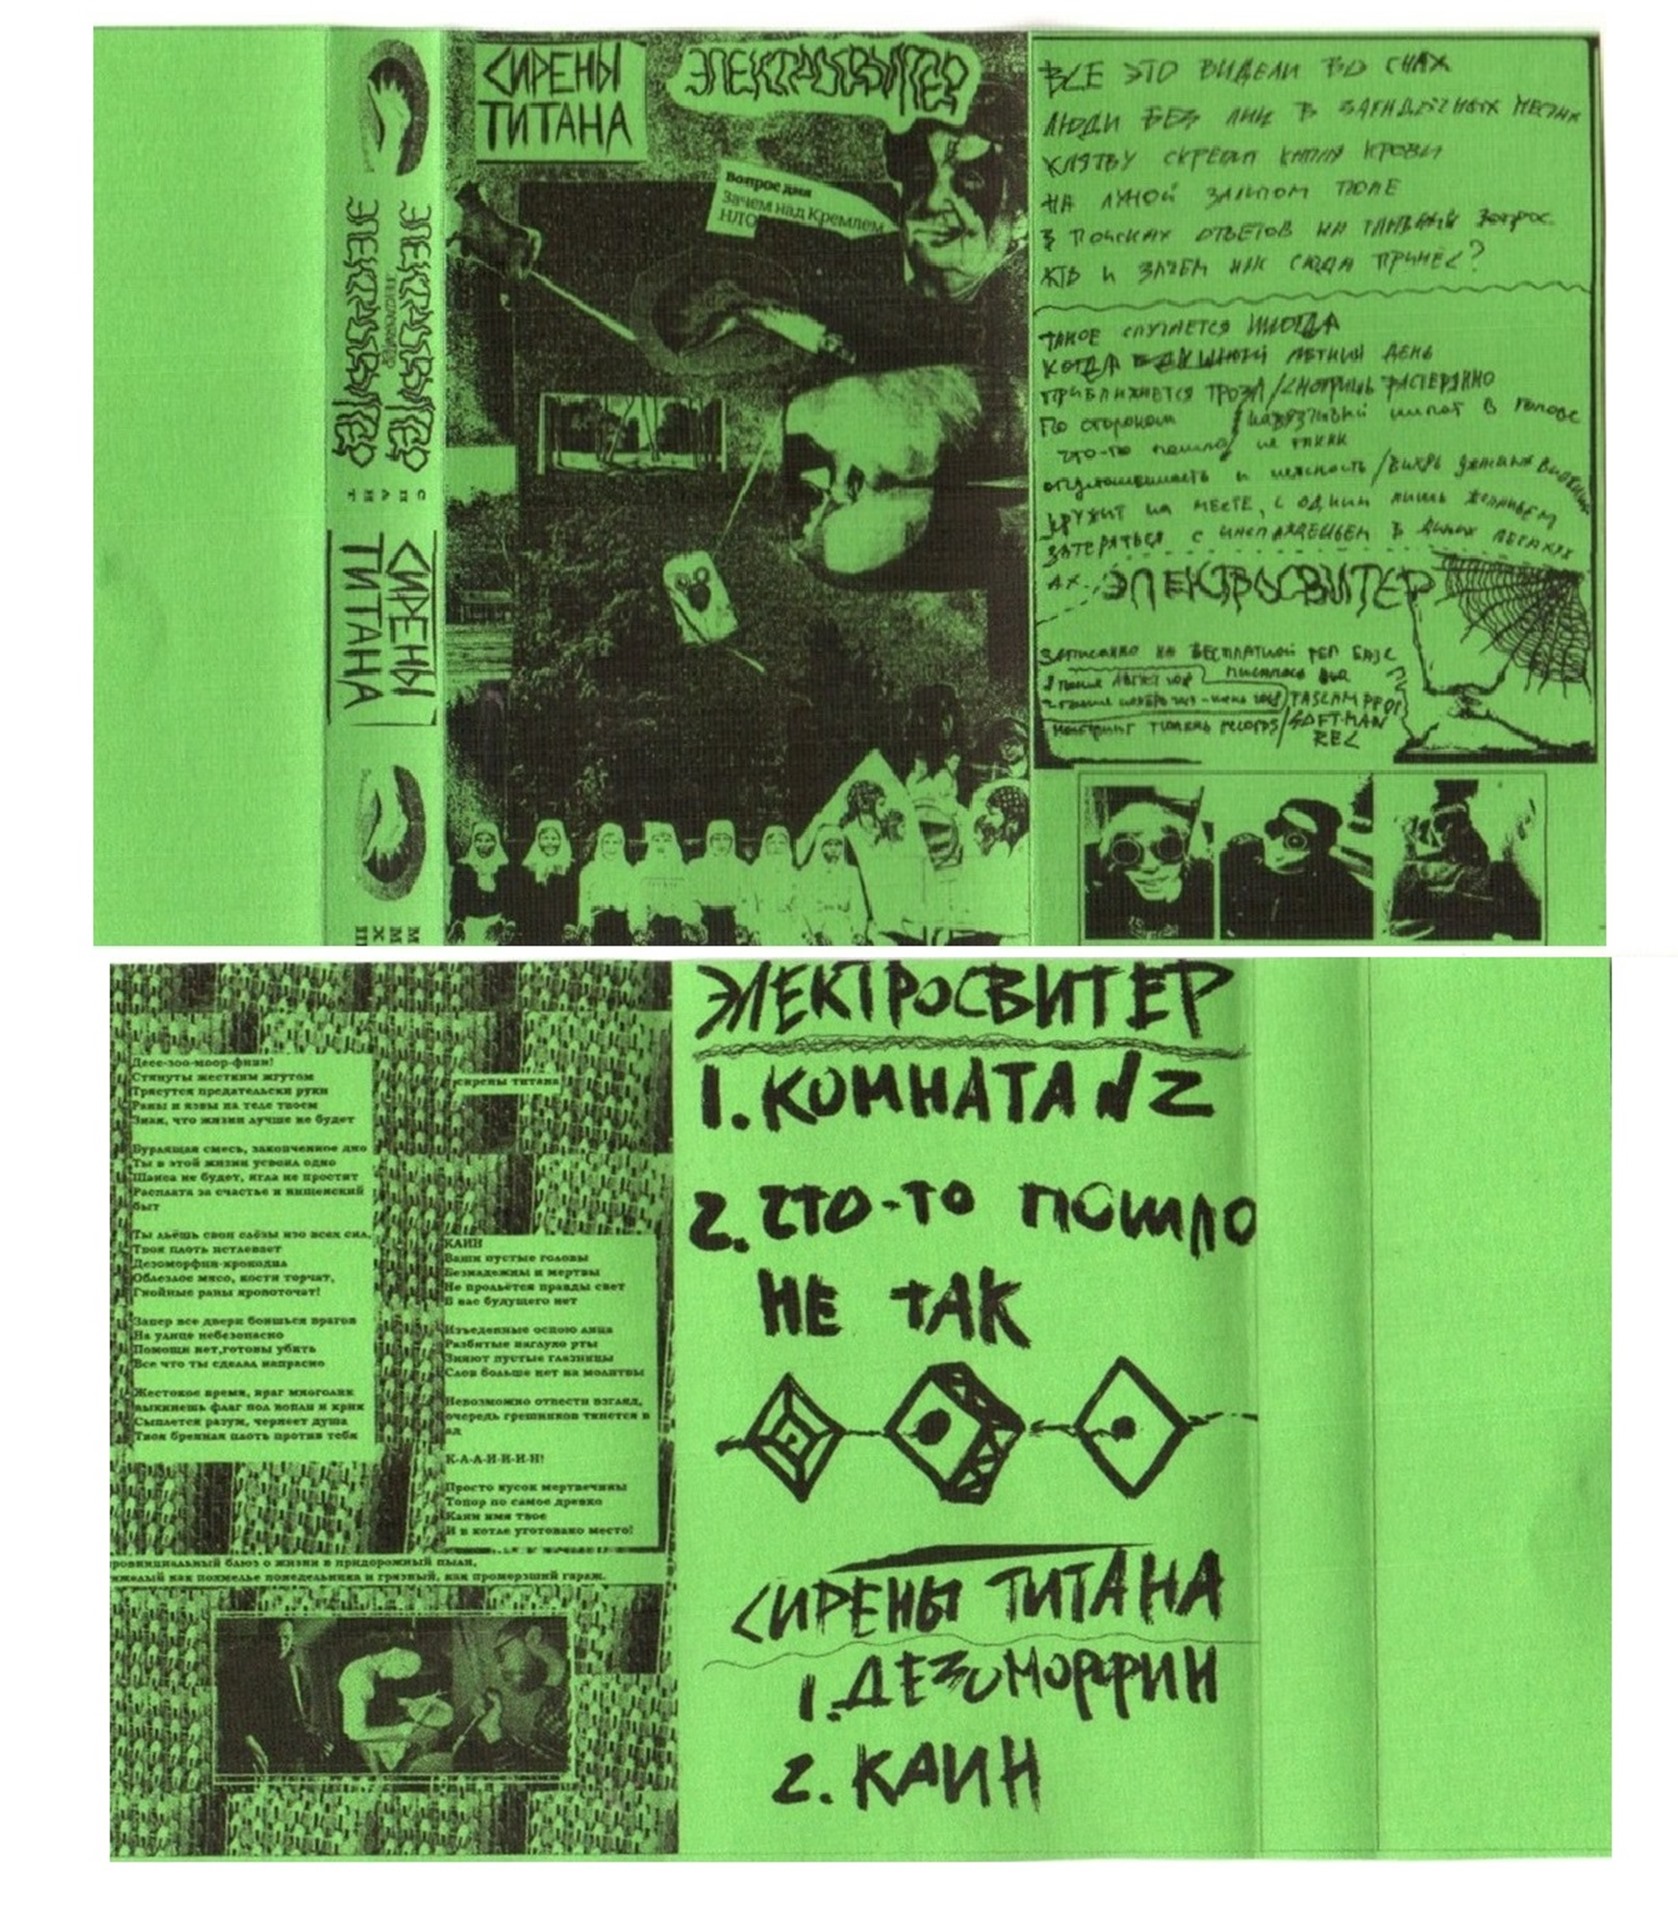 СИРЕНЫ
ТИТАНА
ЭЛЕКТРОСВИТЕР
вопрос дня
Зачем над Кремлем
НЛО
ЭЛЕКТРОСВИТЕР
ЭЛЕКТРОСВИТЕР
СПЛИТ
СИРЕНЫ
ТИТАНА
ВСЕ ЭТО ВИДЕЛИ ВО СНАХ
ЛЮДИ БЕЗ ЛИЦ В ЗАГАДОЧНЫХ МЕСТАХ
КЛЯТВУ СКРЕПИ КАПЛЯ КРОВИ
НА ЛУНОЙ ЗАЛИТОМ ПОЛЕ
В ПОИСКАХ ОТВЕТОВ НА ГЛАВНЫЙ ВОПРОС
КТО И ЗАЧЕМ НАС СЮДА ПРИНЁС?
ТАКОЕ СЛУЧАЕТСЯ ИНОГДА
КОГДА В ДУШНЫЙ ЛЕТНИЙ ДЕНЬ
ПРИБЛИЖАЕТСЯ ГРОЗА / СМОТРИШЬ РАСТЕРЯННО
ПО СТОРОНАМ / НАВЯЗЧИВЫЙ ШЕПОТ В ГОЛОВЕ
ЧТО-ТО ПОШЛО НЕ ТАК
КРУЖИТ НА МЕСТЕ, С ОДНИМ ЛИШЬ ЖЕЛАНИЕМ
ЗАТЕРЯТЬСЯ С
АХ
ЭЛЕКТРОСВИТЕР
ЗАПИСАННО НА БЕСПЛАТНОЙ РЕП БАЗЕ
МАСТЕРИНГ ТЮМЕНЬ RECORDS / SOFTMAN
REC
Дезе-зоо-моор-фиин!
Стянуты жестким жгутом
Трясутся предательски руки
Раны и язвы на теле твоем
Знак, что жизни лучше не будет
Бурлящая смесь, закопченное дно
Ты в этой жизни усвоил одно
Шанса не будет, игла не простит
Расплата за счастье и нищенский
быт
Ты льёшь свои слёзы изо всех сил,
Твоя плоть истлевает
Дезоморфин-крокодил
Облезлое мясо, кости торчат,
Гнойные раны кровоточат!
Запер все двери боишься врагов
На улице небезопасно
Помощи нет,готовы убить
Все что ты сделал напрасно
Жестокое время, враг многолик
выкинешь флаг под вопли и крик
Сыплется разум, чернеет душа
Твоя бренная плоть против тебя
сирены титана
КАИН
Ваши пустые головы
Безнадежны и мертвы
Не прольётся правды свет
В вас будущего нет
Изъеденные оспою лица
Разбитые наглухо рты
Зияют пустые глазницы
Слов больше нет на молитвы
Невозможно отвести взгляд,
очередь грешников тянется в
ад
К-А-А-И-И-И-Н!
Просто кусок мертвечины
Топор по самое древко
Каин имя твое
И в котле уготовано место!
ровинциальный блюз о жизни в придорожный пыли,
яжелый как похмелье понедельника и грязный, как промерзший гараж.
ЭЛЕКТРОСВИТЕР
1. КОМНАТА N2
2. ЧТО-ТО ПОШЛО
НЕ ТАК
СИРЕНЫ ТИТАНА
1. ДЕЗОМОРФИН
2. КАИН